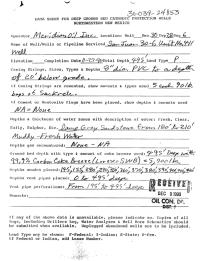 30-039-24353
DATA SHEET FOR DEEP GROUND BED CATHODIC PROTECTION WELLS
NORTHWESTERN NEW MEXICO
Operator Meridian Oil Inc. Location: Unit
Name of Well/Wells or Pipeline Serviced San Juan 30-6 Unit
Well
Elevation Completion Date Total Depth 495' Land Type P
Casing Strings, Sizes, Types & Depths 8" dia PVC to a depth
of 60' below grade.
If Casing Strings are cemented, show amounts & types used
bags of
If Cement or Bentonite Plugs have been placed, show depths & amounts used
NA - None
Depths & thickness of water zones with description of water: Fresh, Clear,
Salty, Sulphur, Etc. Damp Gray Sandstone From 180' To 210'
Muddy - Fresh Water
Depths gas encountered: None - NA
Ground bed depth with type & amount of coke breeze used: 495' Deep with
Depths anodes placed:
Depths vent pipes placed: 0 to 495' deep
Vent pipe perforations: From 195' to 495' deep
Remarks:
RECEIVED
DEC
OIL CON. DIV.
If any of the above data is unavailable, please indicate so. Copies of all
logs, including Drillers Log, Water Analyses & Well Bore Schematics should
be submitted when available. Unplugged abandoned wells are to be included.
Land Type may be shown: F-Federal; I-Indian; S-State; P-Fee.
If Federal or Indian, add Lease Number.